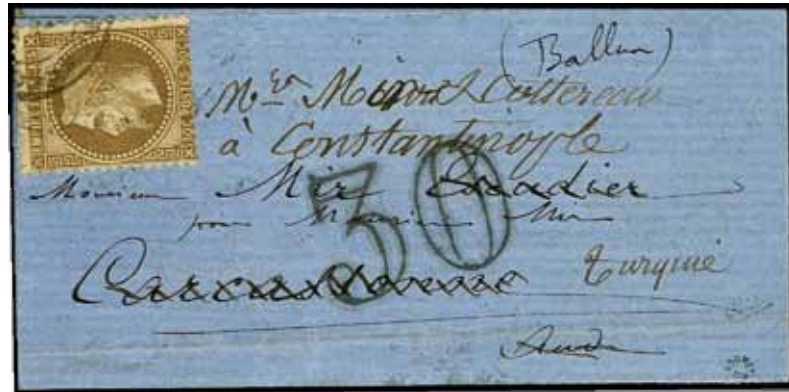 (Ballon)
Mr Mirot Cottereau
à Constantinople
Monsieur Mir
pour Monsieur Mir
30
Carcassonne Turquie
Aude